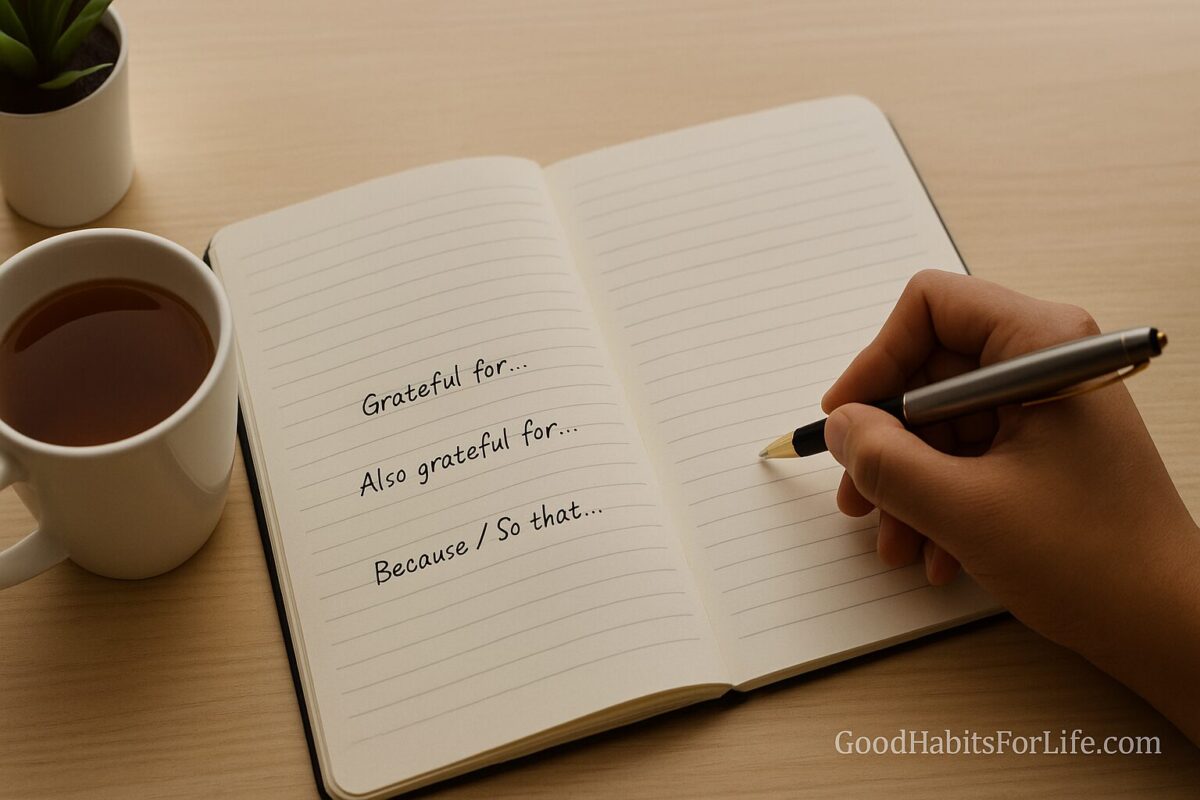 Grateful for...
Also grateful for...
Because / So that...
GoodHabitsForLife.com